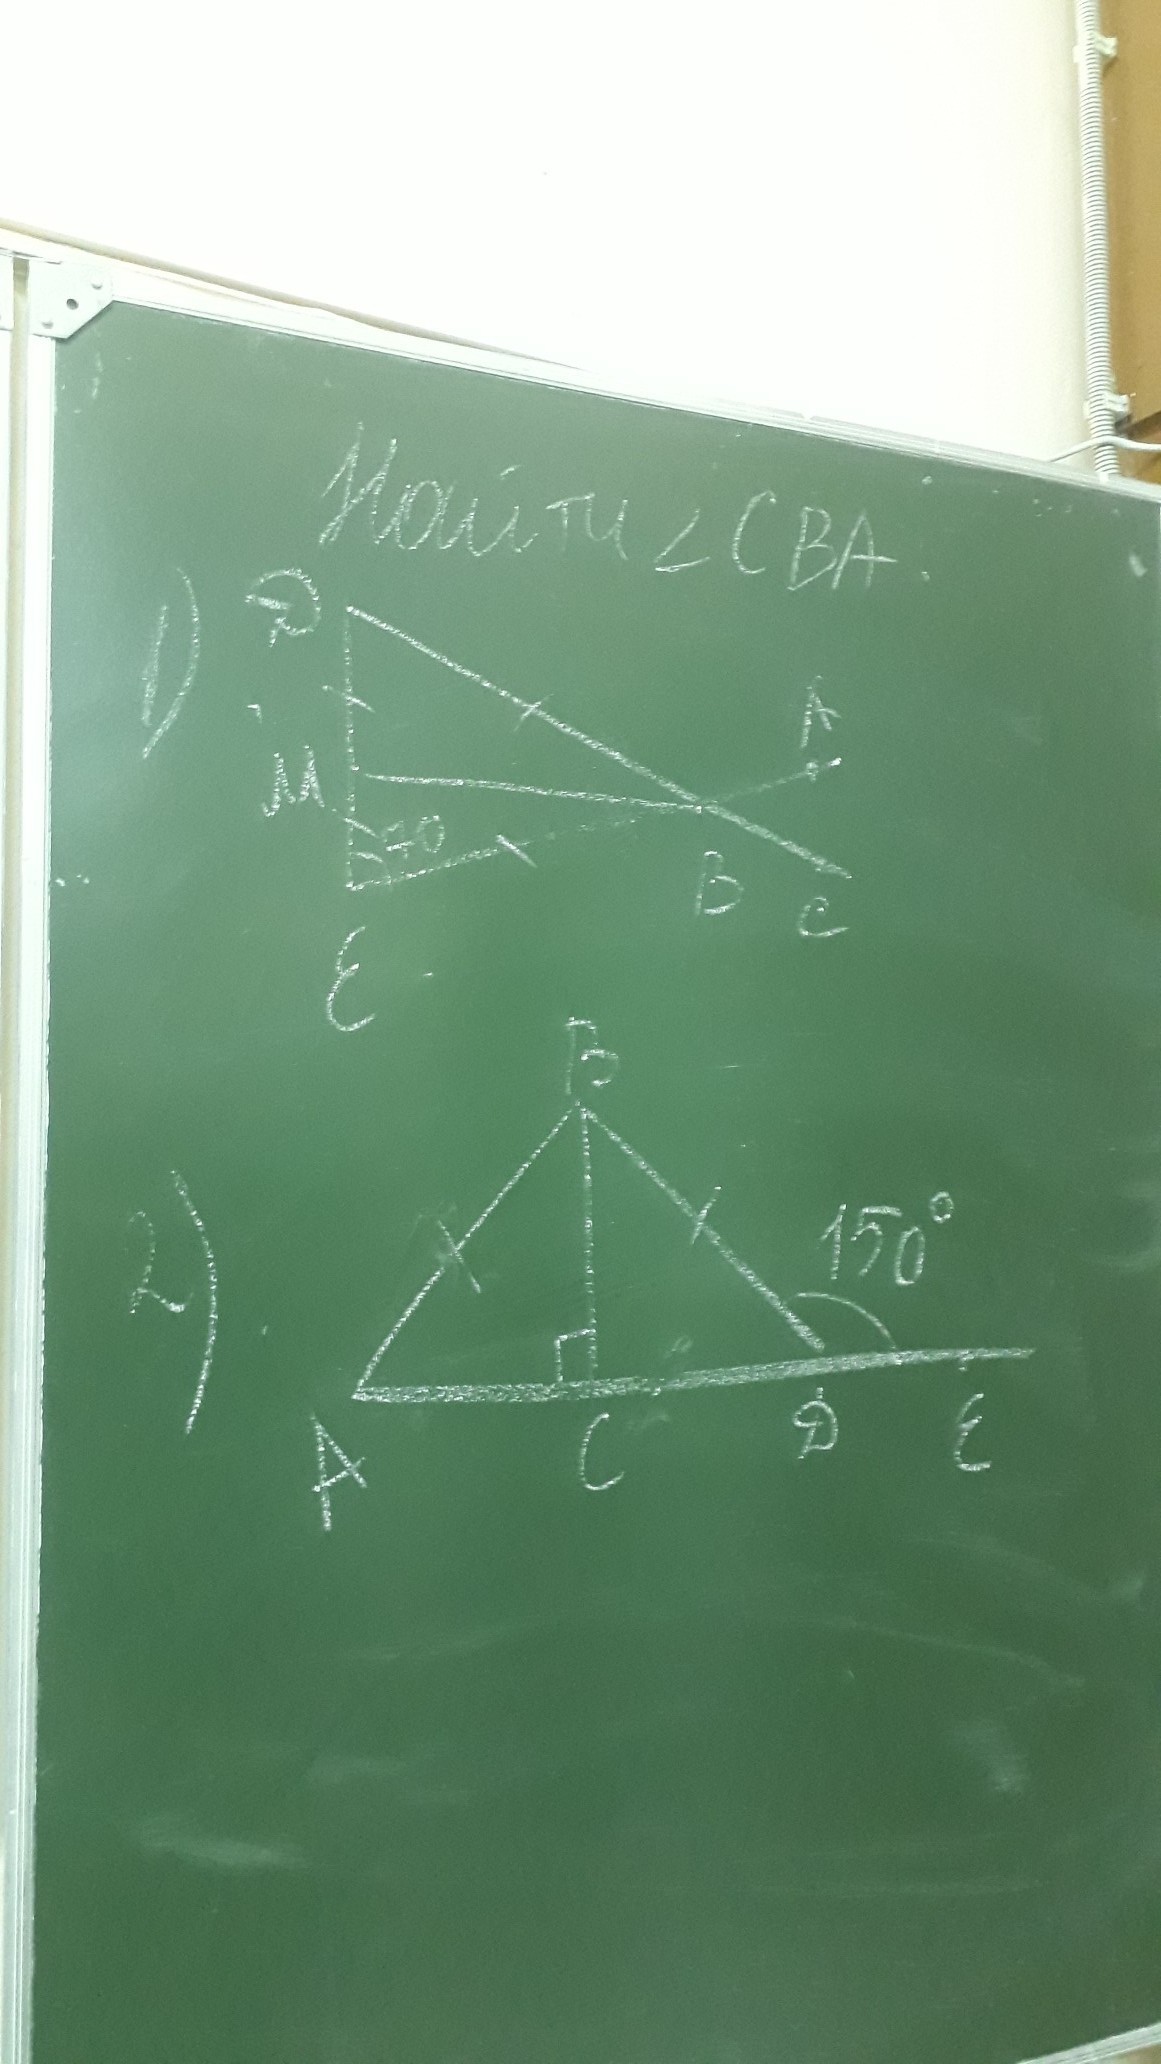 Найти ∠CBA.
1) D
A
M
70
B
C
E
B
2)
150°
A C D E